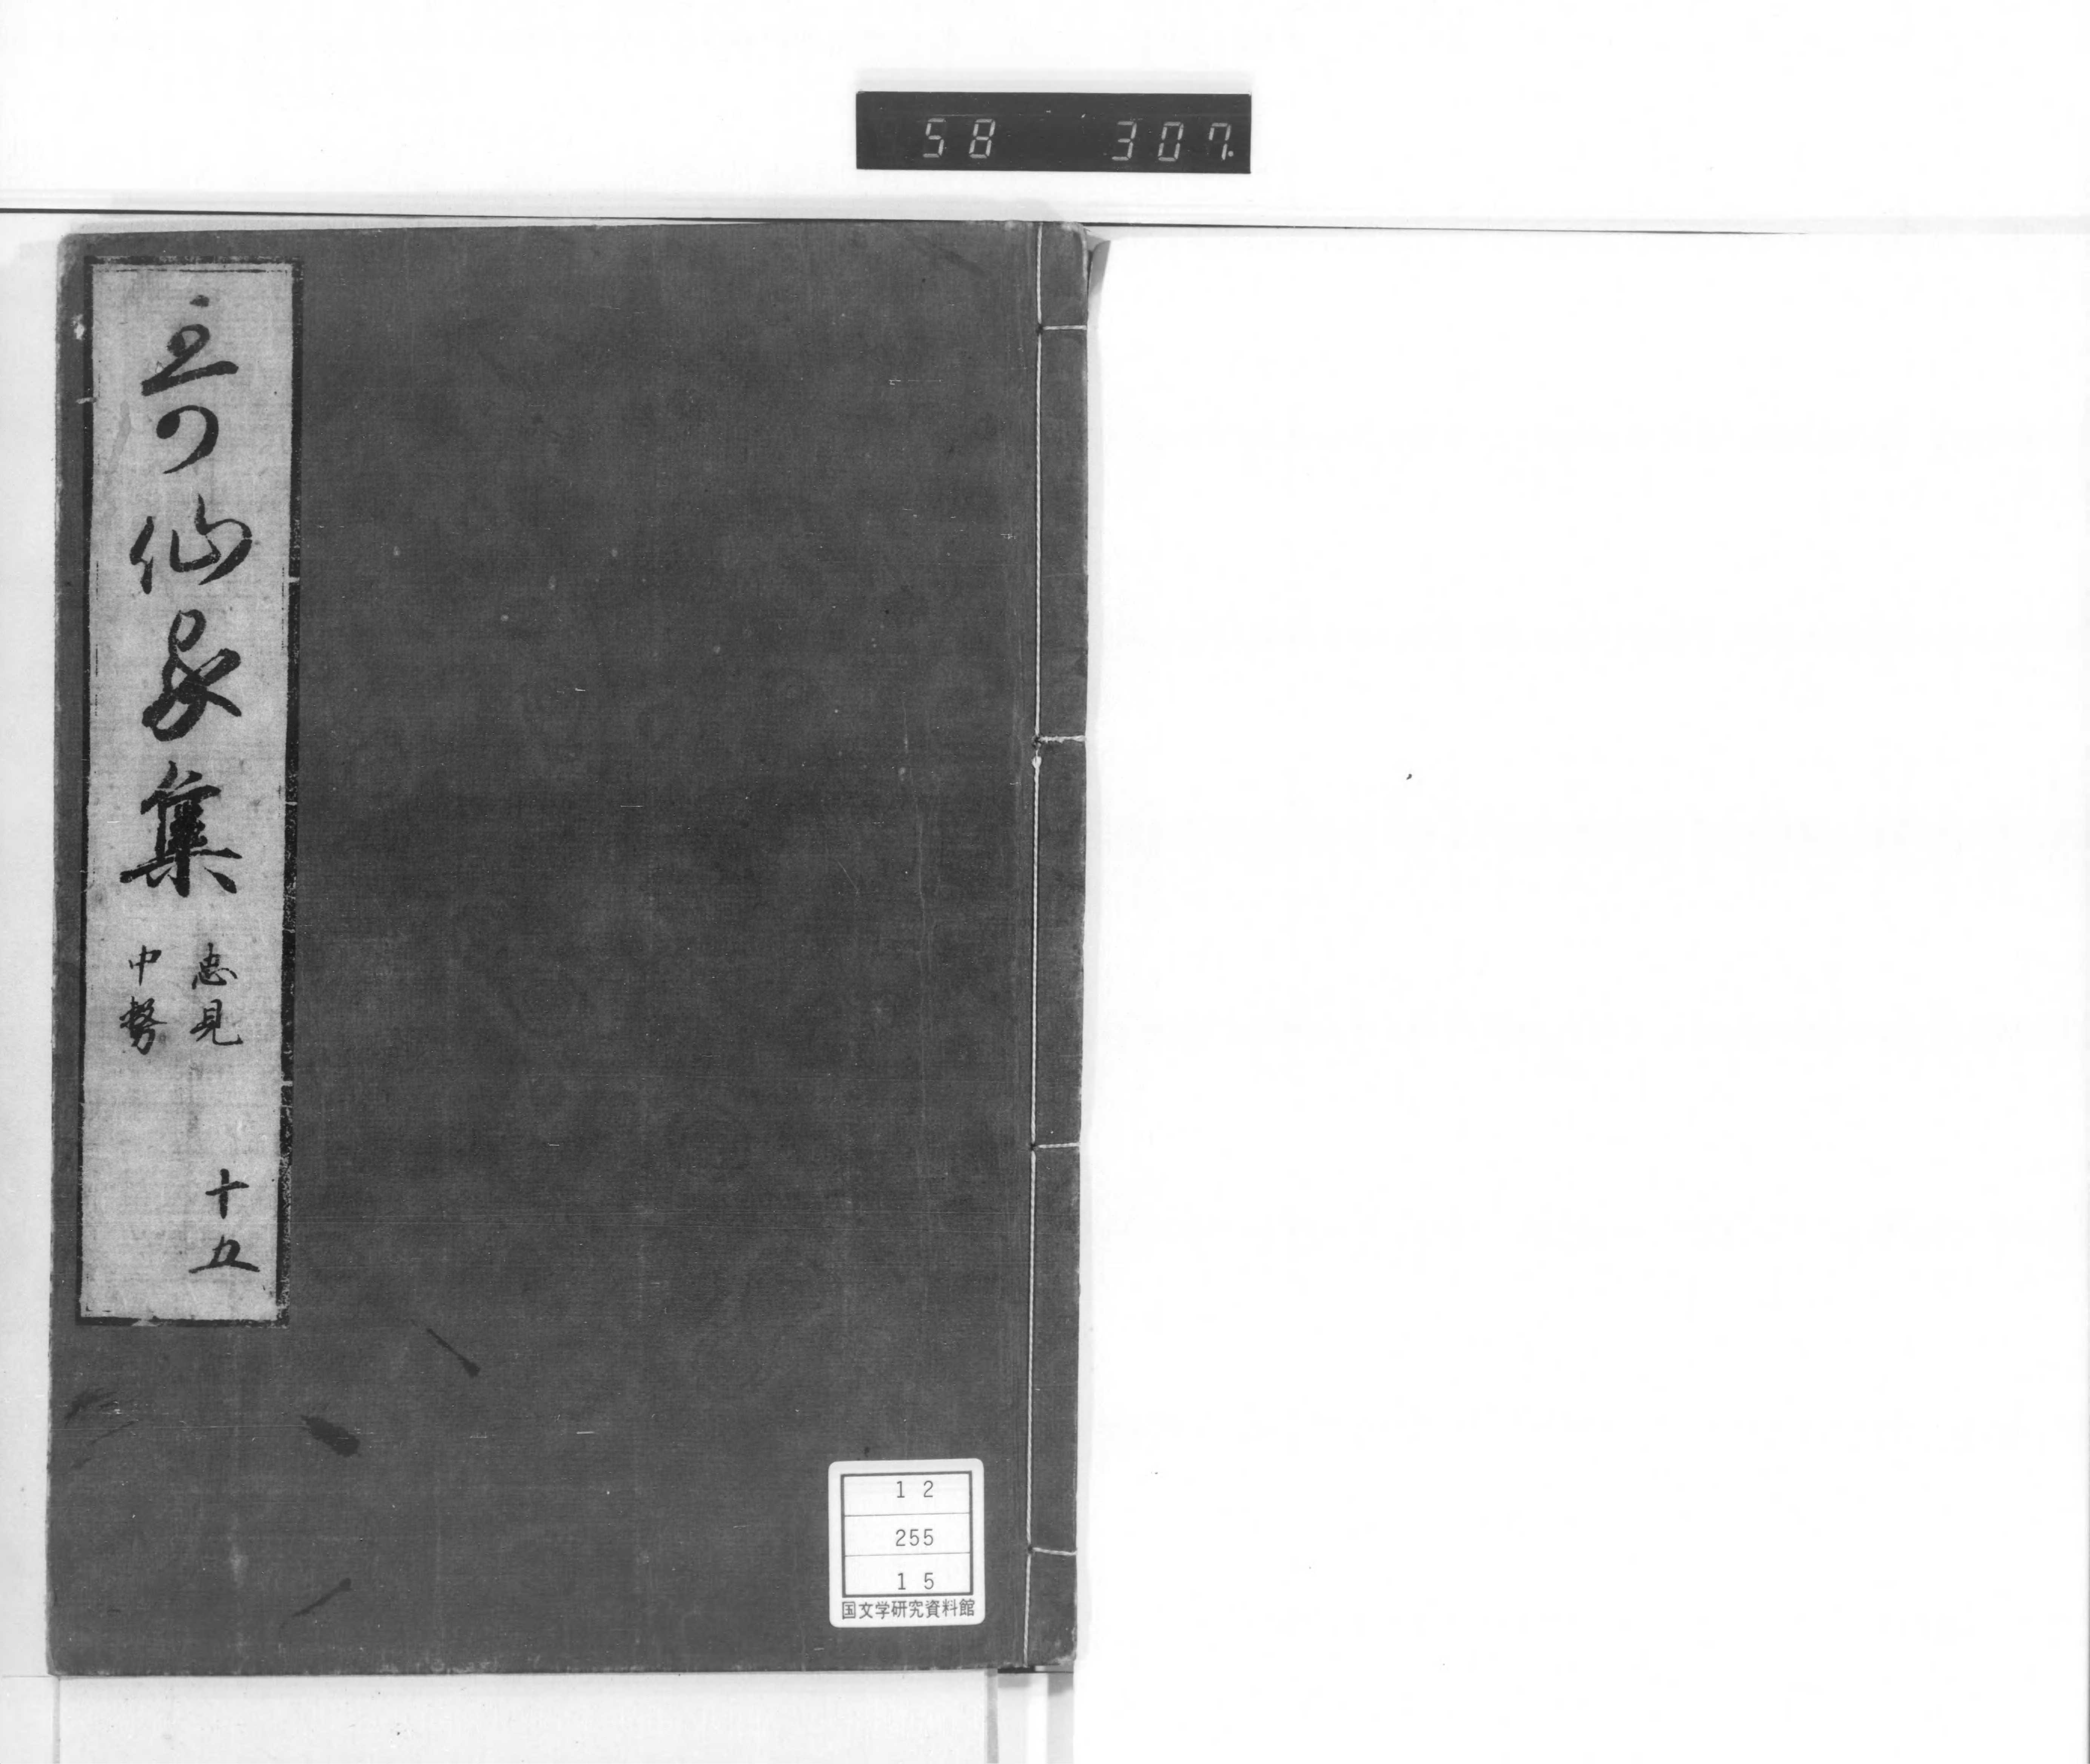 58 307.
哥仙家集
忠見
中務
十五
12
255
15
国文学研究資料館